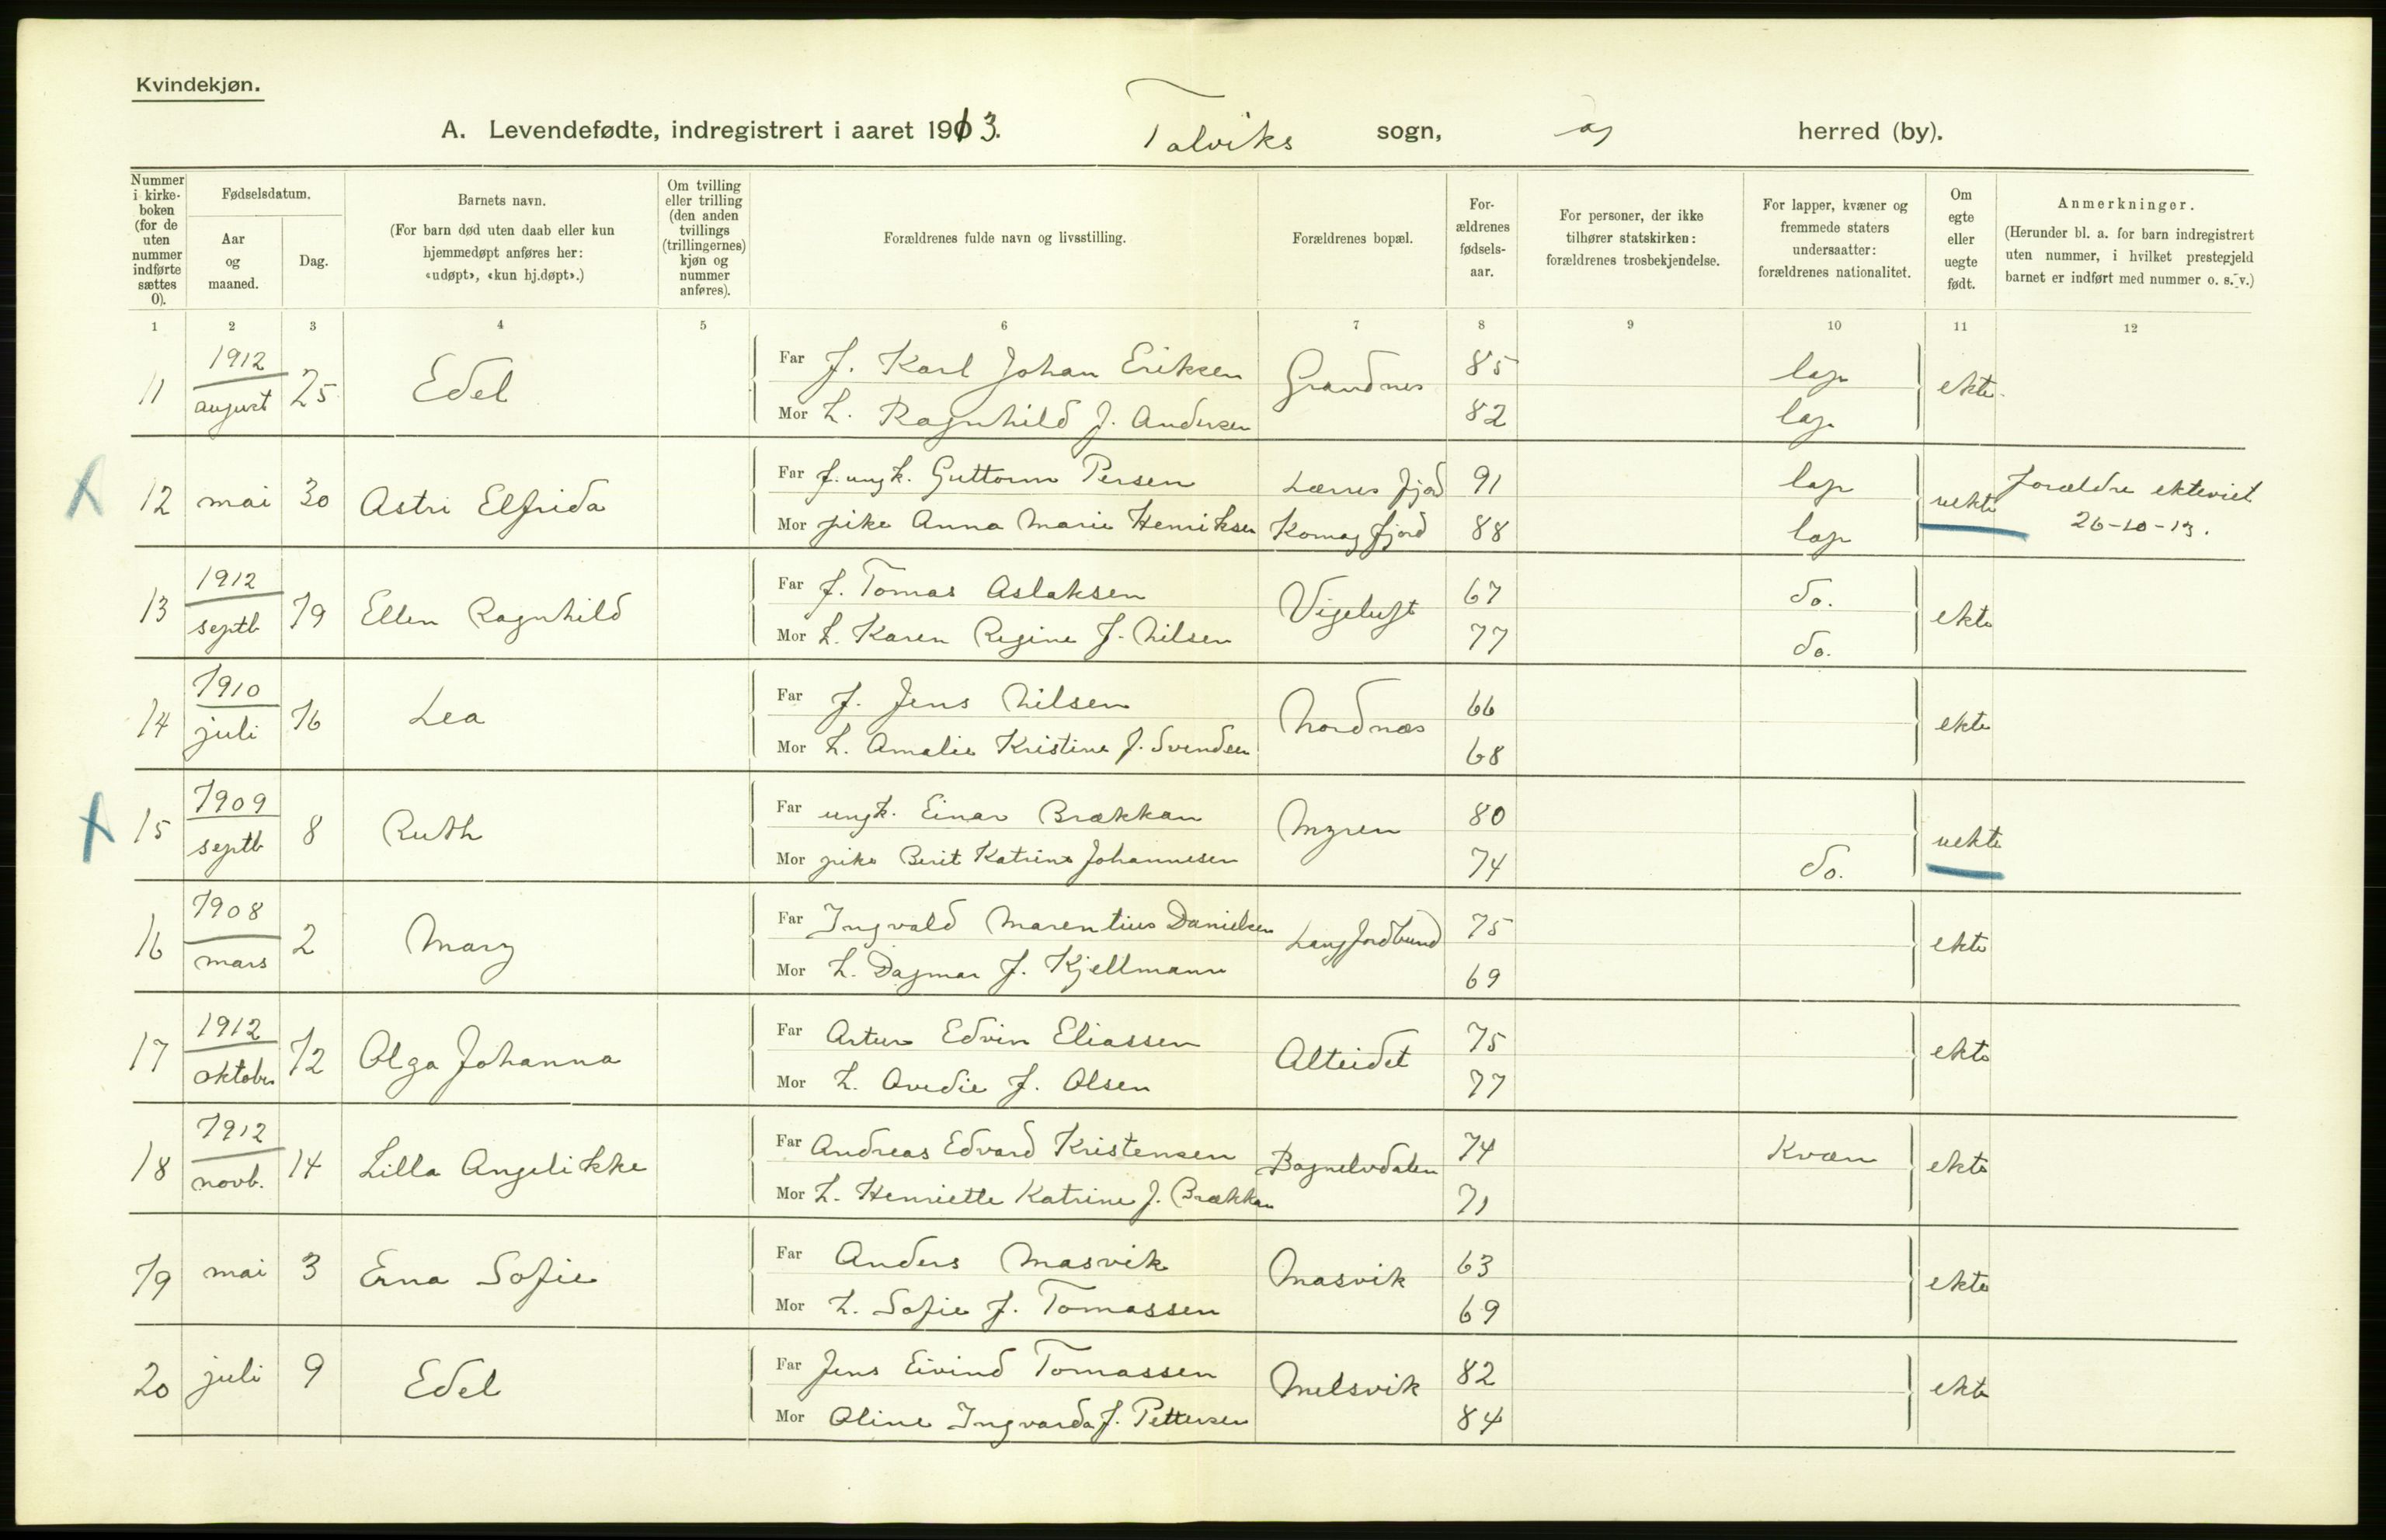 Kvindekjøn.
A. Levendefødte, indregistrert i aaret 1913. Talviks sogn, herred (by).
Nummer i kirkeboken (for de uten nummer indførte sættes 0).
Fødselsdatum.
Aar og maaned.
Dag.
Barnets navn.
(For barn død uten daab eller kun hjemmedøpt anføres her: «udøpt», «kun hj.døpt».)
Om tvilling eller trilling (den anden tvillings (trillingernes) kjøn og nummer anføres).
Forældrenes fulde navn og livsstilling.
Forældrenes bopæl.
Forældrenes fødselsaar.
For personer, der ikke tilhører statskirken: forældrenes trosbekjendelse.
For lapper, kvæner og fremmede staters undersaatter: forældrenes nationalitet.
Om egte eller uegte født.
Anmerkninger.
(Herunder bl. a. for barn indregistrert uten nummer, i hvilket prestegjeld barnet er indført med nummer o. s. v.)
1 2 3 4 5 6 7 8 9 10 11 12
11 1912 august 25 Edel Far f. Karl Johan Eriksen Grandnes 85 lap ekte.
Mor h. Ragnhild f. Andersen 82 lap
12 mai 30 Astri Elfrida Far f. ungk. Guttorm Persen Lerres fjord 91 lap uekte Forældre ekteviet
Mor pike Anna Marie Henriksen Komagfjord 88 lap 26-10-13.
13 1912 septb 19 Ellen Ragnhild Far f. Tomas Aslaksen 67 do. ekte
Mor h. Karen Regine f. Nilsen 77 do.
14 1910 juli 16 Lea Far f. Jens Nilsen Nordnæs 66 ekte
Mor h. Amalie Kristine f. Svendsen 68
15 1909 septb 8 Ruth Far ungk. Einar Brækkan Myren 80 uekte
Mor pike Berit Katrine Johannesen 74 do.
16 1908 mars 2 Mary Far Ingvald Marentius Danielsen Langfjordbund 75 ekte
Mor h. Dagmar f. Kjellmann 69
17 1912 oktober 12 Olga Johanna Far Artur Edvin Eliassen Alteidet 75 ekte
Mor h. Ovedie f. Olsen 77
18 1912 novb. 14 Lilla Angelikke Far Andreas Edvard Kristensen Bognelvdalen 74 Kvæn ekte
Mor h. Henriette Katrine f. Brækkan 71
19 mai 3 Erna Sofie Far Anders Masvik Masvik 63 ekte
Mor h. Sofie f. Tomassen 69
20 juli 9 Edel Far Jens Eivind Tomassen Melsvik 82 ekte
Mor Oline Ingvarda f. Pettersen 84